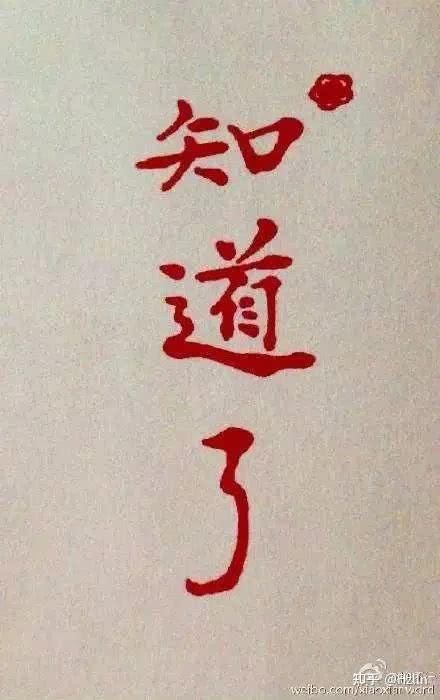 知
道
了
知乎
weibo.com/xiaoxianword